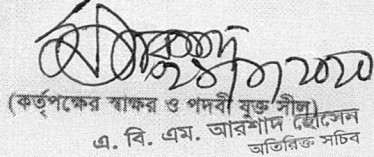 ২০২০
(কর্তৃপক্ষের স্বাক্ষর ও পদবী যুক্ত সীল)
এ. বি. এম. আরশাদ হোসেন
অতিরিক্ত সচিব